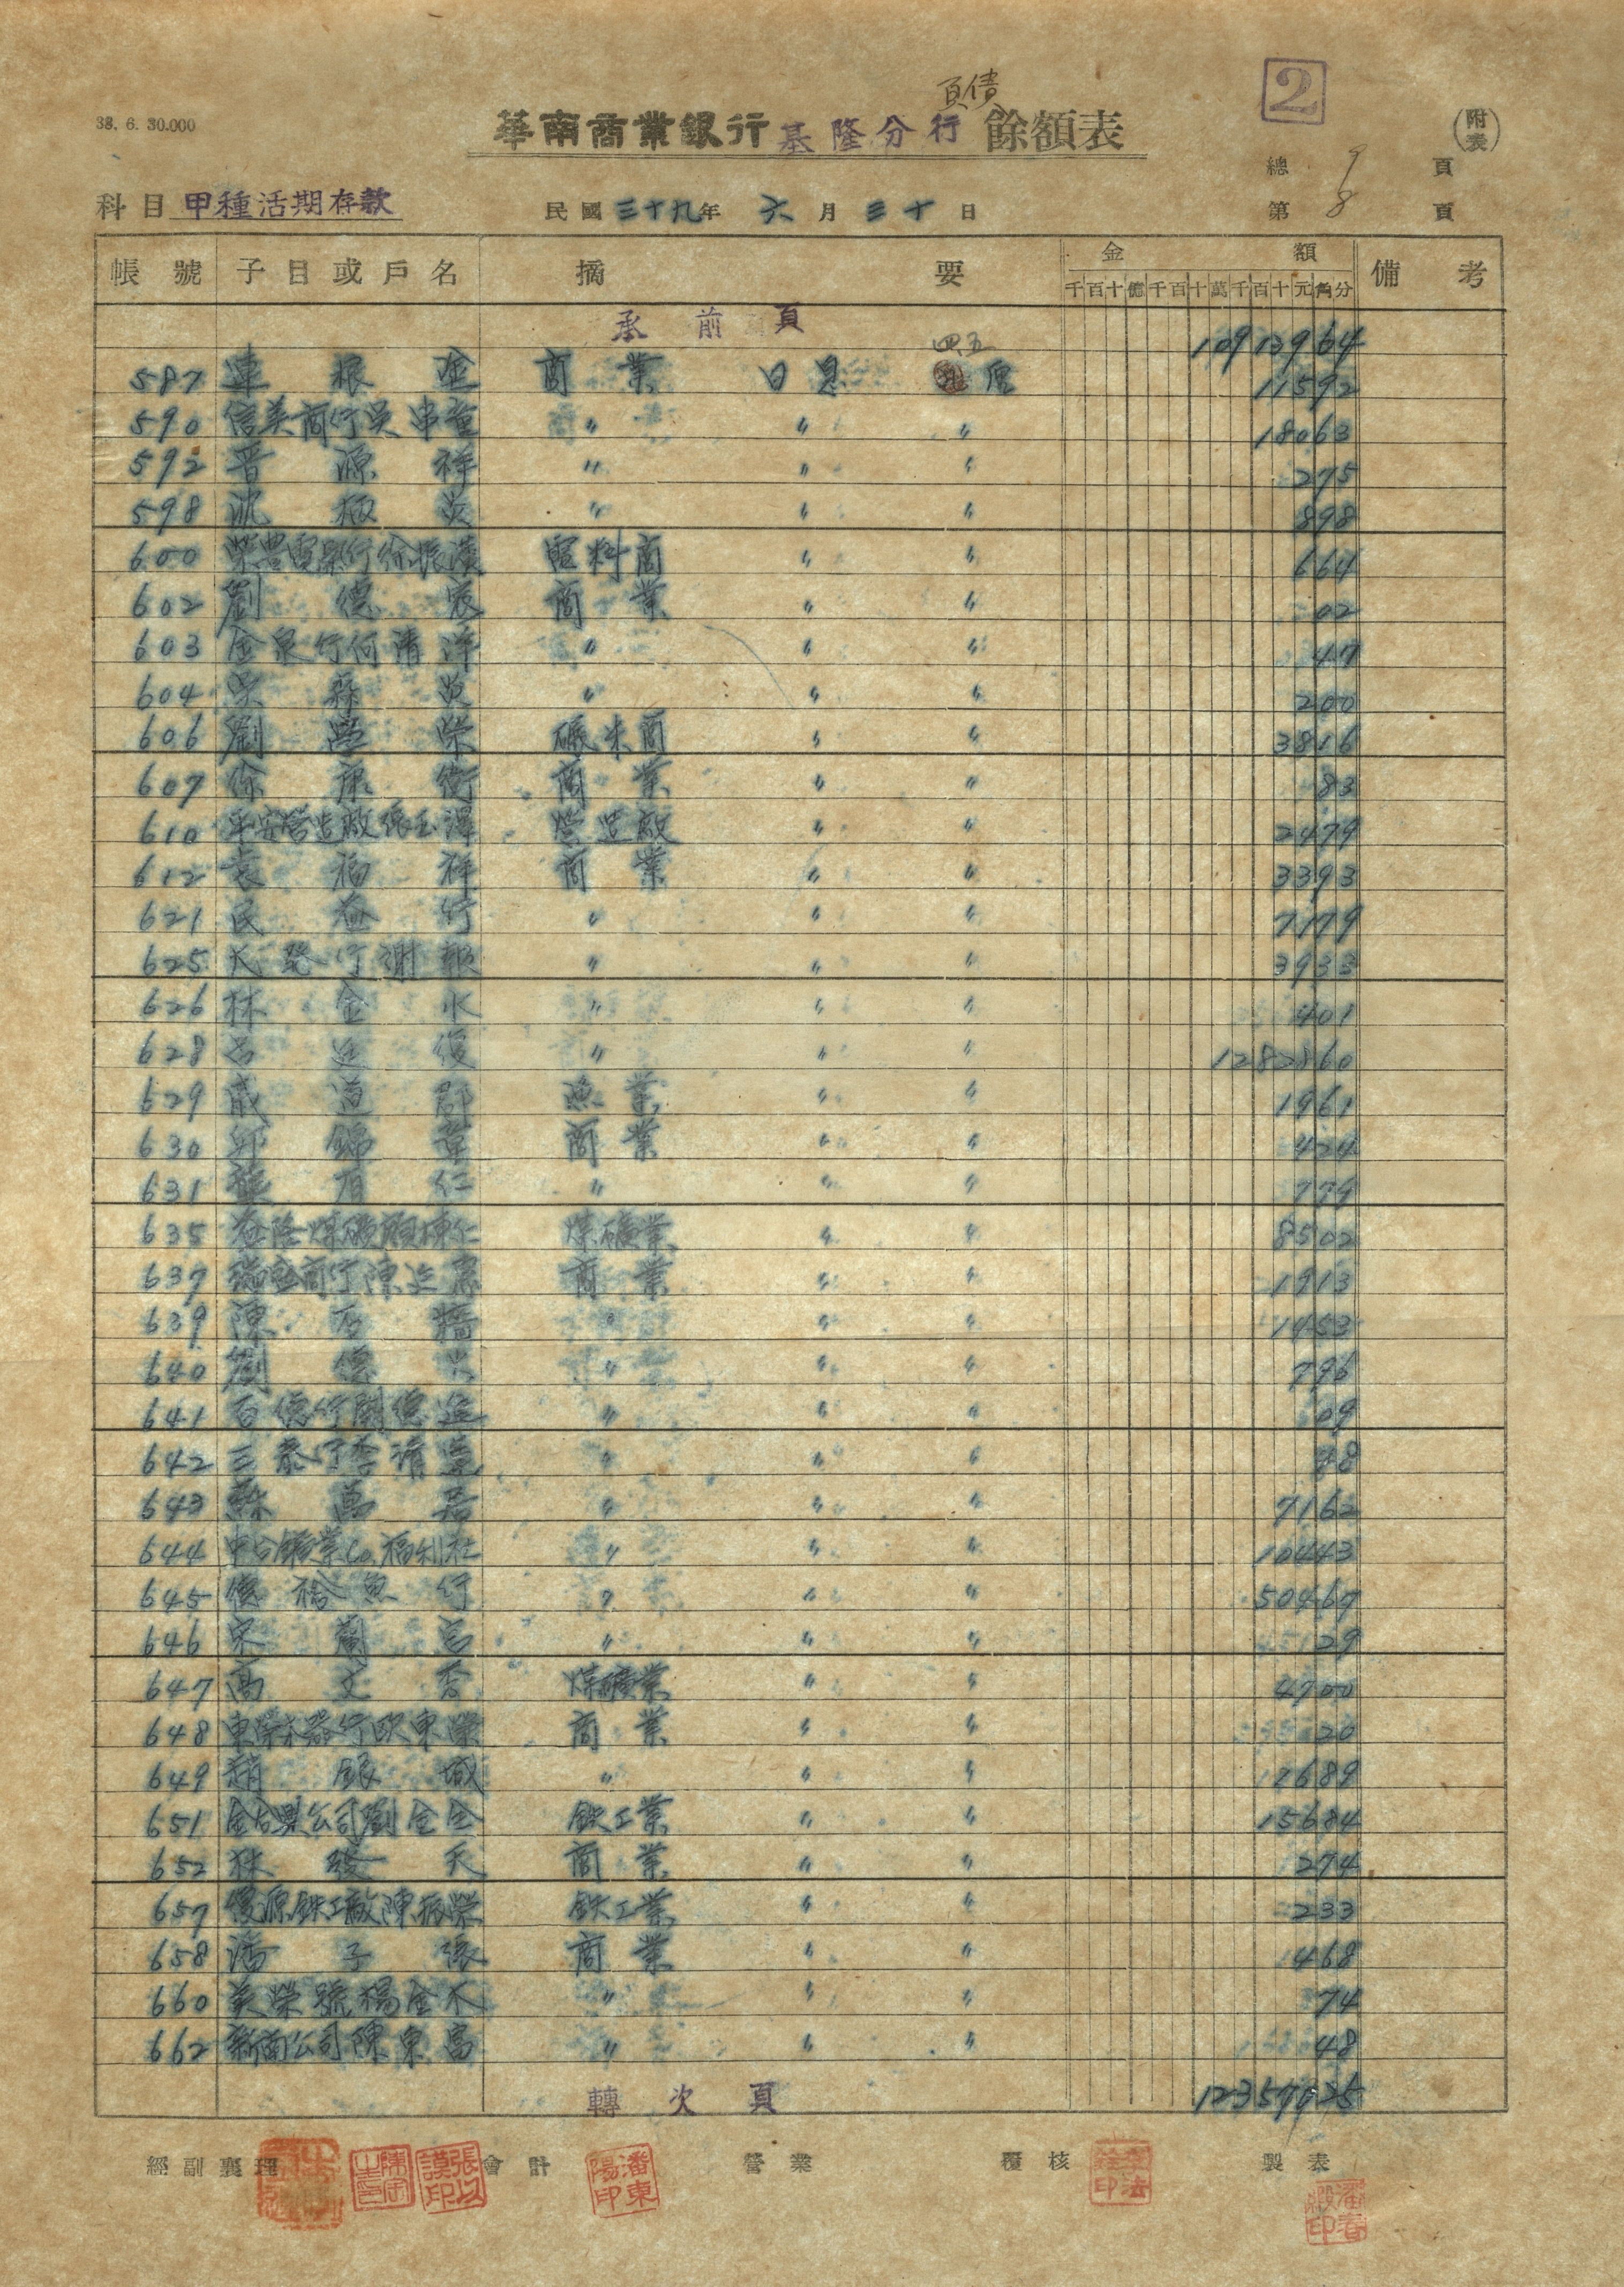 38. 6. 30.000
負債
華南商業銀行 基隆分行 餘額表
2
(附表)
總 9 頁
第 8 頁
科目 甲種活期存款
民國 三十九年 六月 三十日
帳號 子目或戶名 摘要 金額 備考
千百十億千百十萬千百十元角分
承前頁 10913964
四五
587 連根金 商業 日息 厘 11592
590 信美商行吳 〃 〃 〃 18063
592 晋源祥 〃 〃 〃 275
598 沈 炎 〃 〃 〃 898
600 電料商 〃 〃 664
602 劉德 商業 〃 〃 02
603 金泉行何清洋 〃 〃 〃 47
604 吳森 〃 〃 〃 200
606 劉 榮 碾米商 〃 〃 3816
607 徐康衛 商業 〃 〃 83
610 平安營造廠張玉潭 營造廠 〃 〃 2479
612 袁福祥 商業 〃 〃 3393
621 民益行 〃 〃 〃 7179
625 大發行謝 〃 〃 〃 3933
626 林金水 〃 〃 〃 401
628 呂 俊 〃 〃 〃 1282860
629 戚道郡 漁業 〃 〃 1961
630 邱錦章 商業 〃 〃 424
631 有仁 〃 〃 〃 779
635 益隆煤礦顏棟仁 煤礦業 〃 〃 8502
637 商行陳 商業 〃 〃 1913
639 陳 〃 〃 〃 1453
640 劉德 〃 〃 〃 796
641 百德行 德 〃 〃 〃 09
642 三泰行李清 〃 〃 〃 48
643 蘇萬居 〃 〃 〃 7162
644 中台鑛業Co.福利社 〃 〃 〃 10443
645 德裕魚行 〃 〃 〃 50467
646 宋蘭 〃 〃 〃 129
647 高文香 煤礦業 〃 〃 4700
648 東榮木器行歐東榮 商業 〃 〃 20
649 趙銀城 〃 〃 〃 12689
651 金台興公司劉金全 鉄工業 〃 〃 15684
652 林發天 商業 〃 〃 274
657 復源鉄工廠陳振榮 鉄工業 〃 〃 233
658 潘子張 商業 〃 〃 1468
660 美榮號楊金木 〃 〃 〃 74
662 新南公司陳東富 〃 〃 〃 48
轉次頁 12357725
經副襄理 會計 營業 覆核 製表
張以謨印 潘東陽印